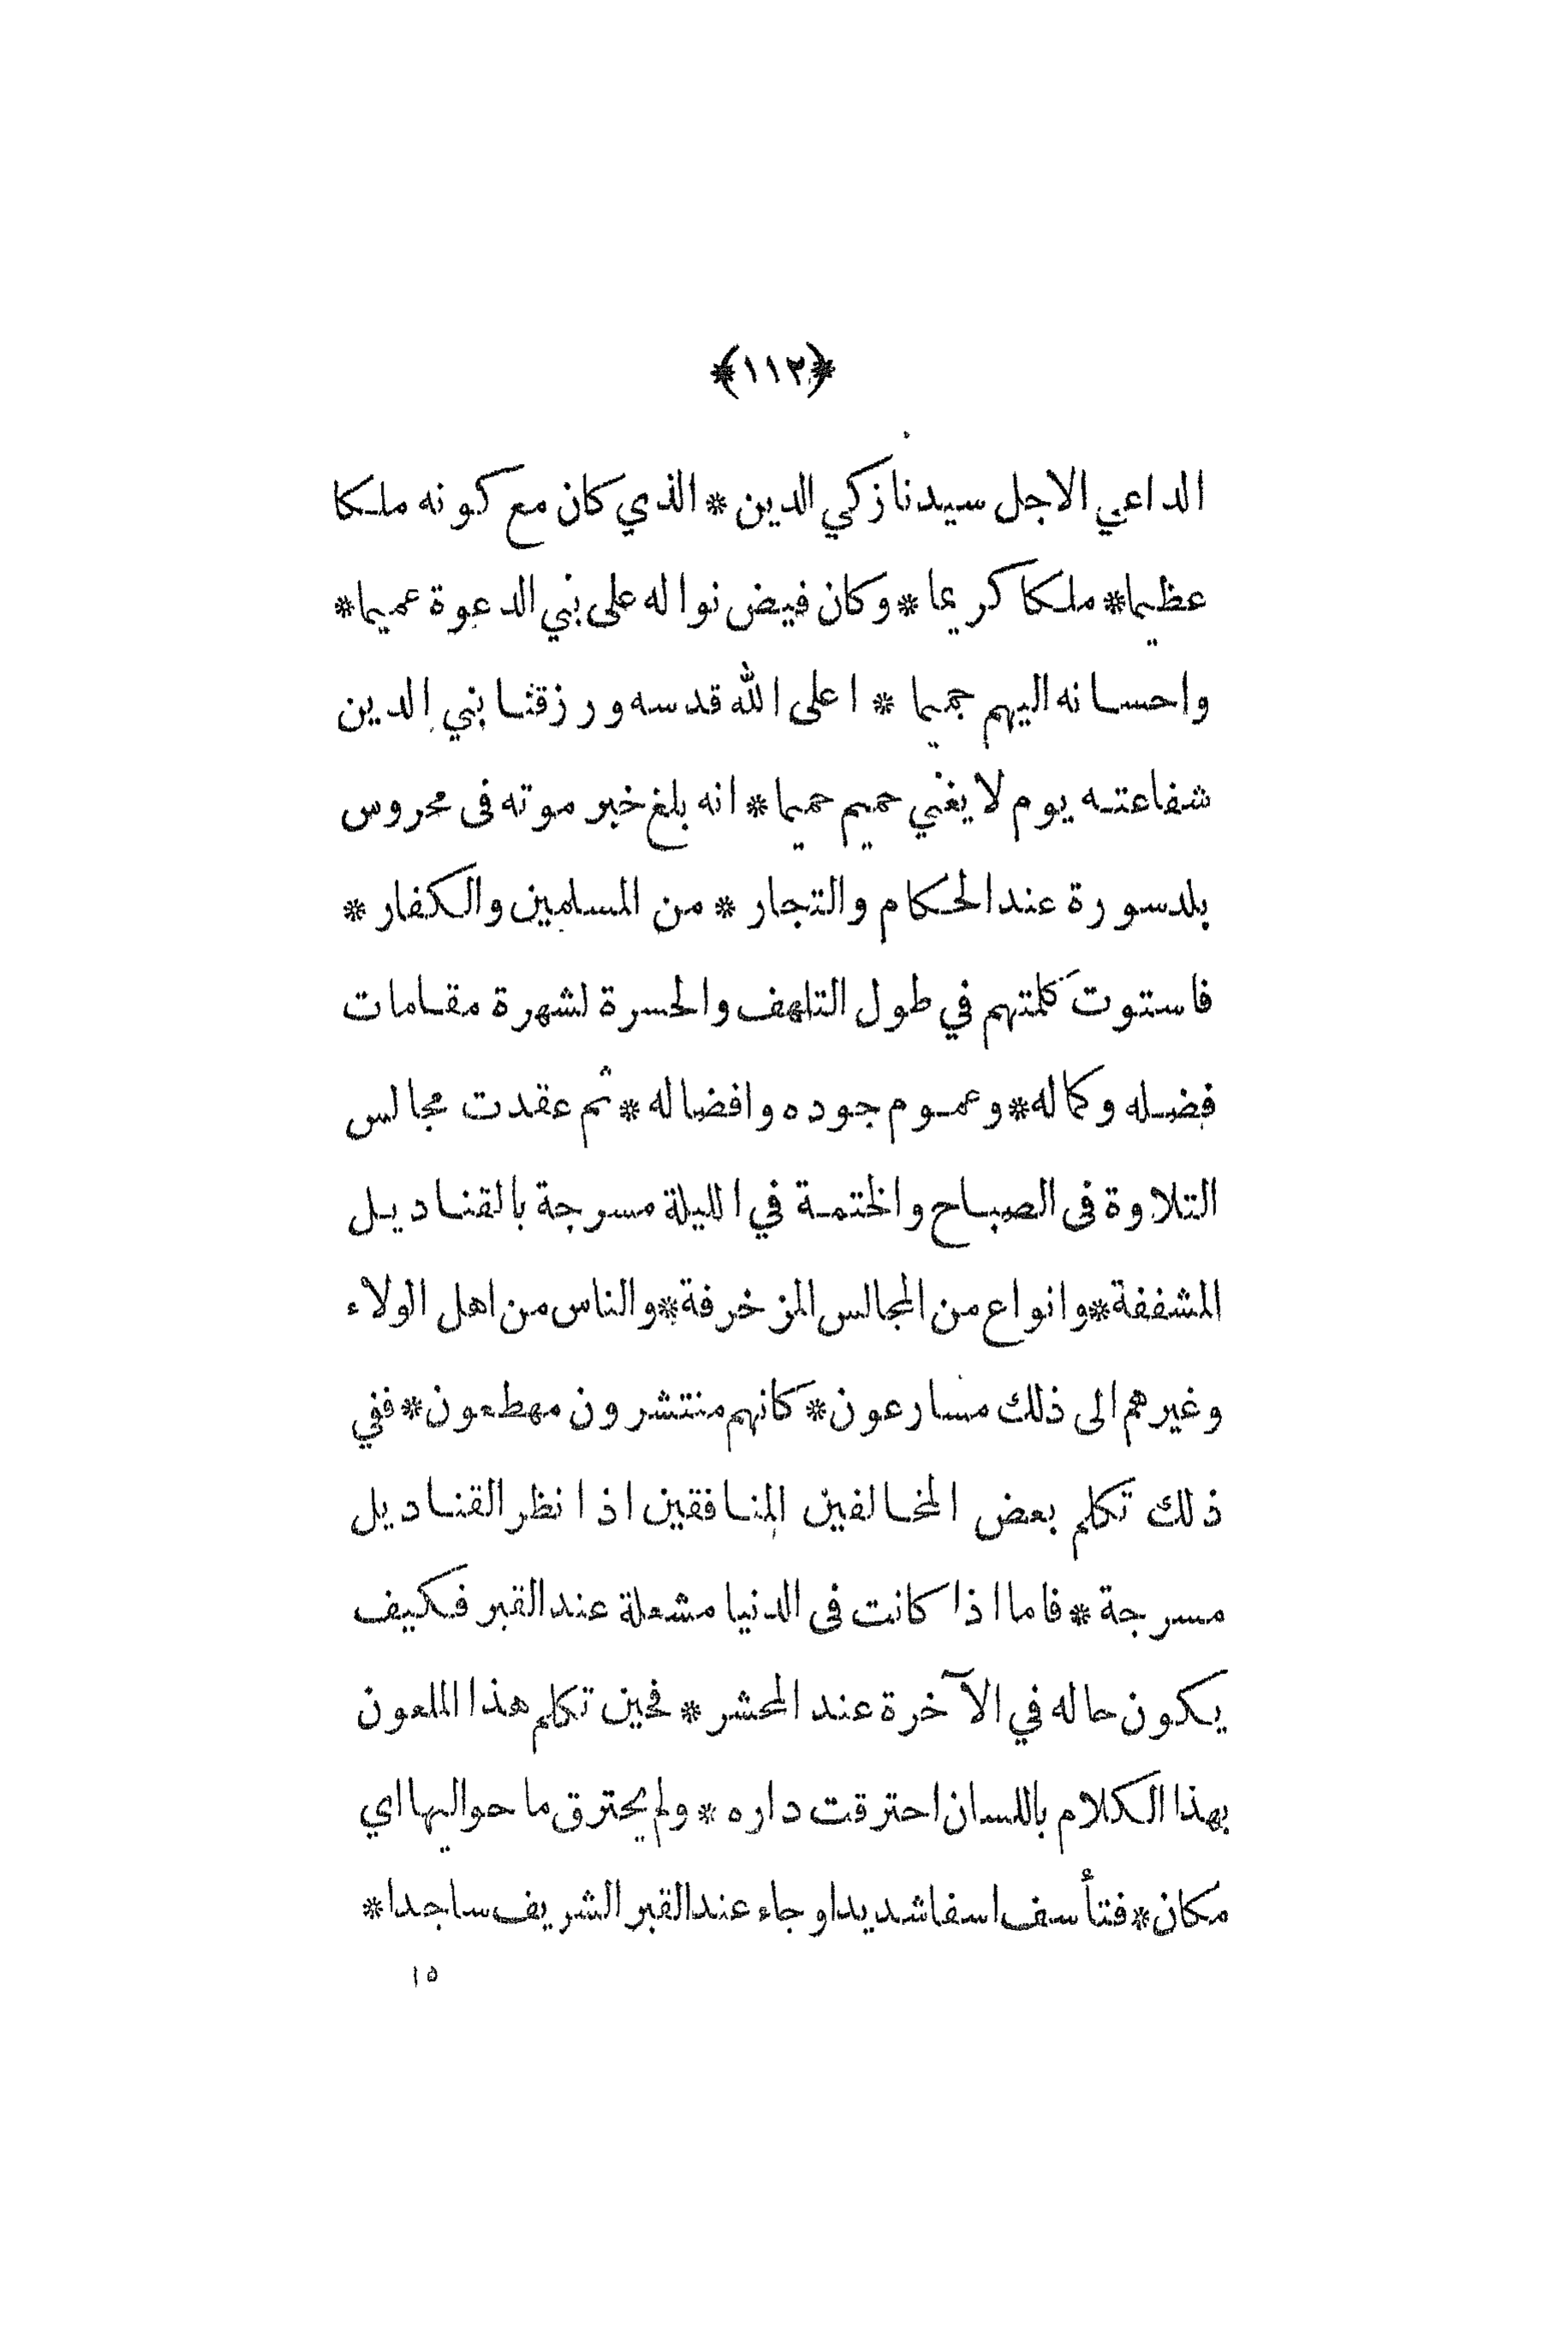 ﴿١١٢﴾
الداعي الاجل سيدنا زكي الدين * الذي كان مع كونه ملكا
عظيما * ملكا كريما * وكان فيض نواله على بني الدعوة عميما *
واحسانه اليهم جميما * اعلى الله قدسه ورزقنا بني الدين
شفاعته يوم لا يغني حميم حميما * انه بلغ خبر موته فى محروس
بلد سورة عند الحكام والتجار * من المسلمين والكفار *
فاستوت كلمتهم في طول التلهف والحسرة لشهرة مقامات
فضله وكماله * وعموم جوده وافضاله * ثم عقدت مجالس
التلاوة فى الصباح والختمة في الليلة مسرجة بالقناديل
المشففة * وانواع من المجالس المزخرفة * والناس من اهل الولاء
وغيرهم الى ذلك مسارعون * كانهم منتشرون مهطعون * ففي
ذلك تكلم بعض المخالفين المنافقين اذا نظر القناديل
مسرجة * فاما اذا كانت فى الدنيا مشعلة عند القبر فكيف
يكون حاله في الآخرة عند المحشر * فحين تكلم هذا الملعون
بهذا الكلام باللسان احترقت داره * ولم يحترق ما حواليها اي
مكان * فتأسف اسفا شديدا وجاء عند القبر الشريف ساجدا *
١٥